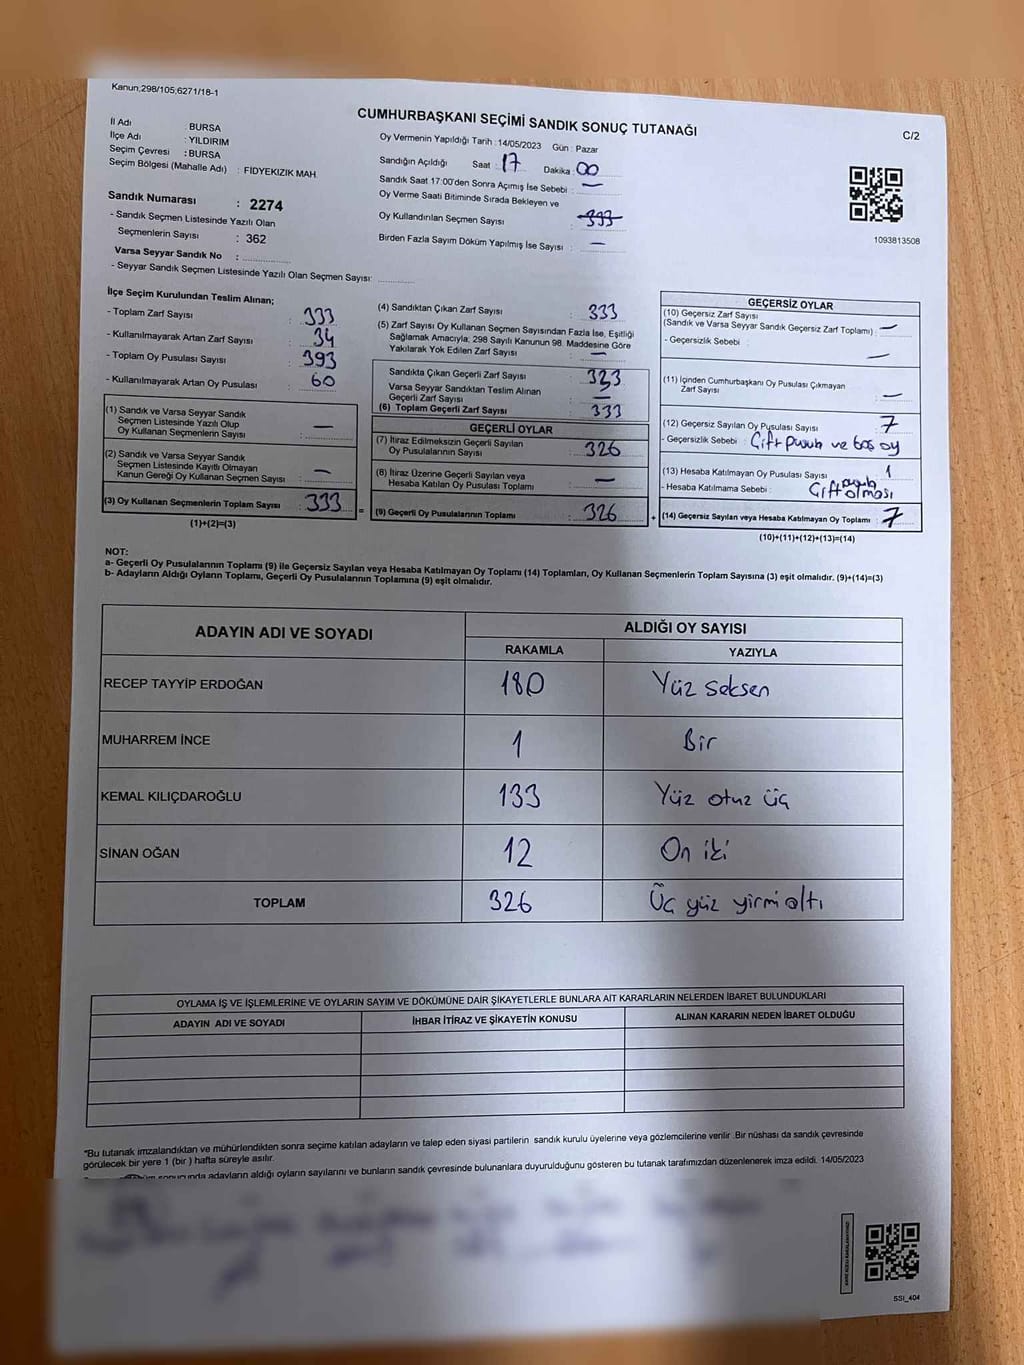 Kanun,298/105;6271/18-1
CUMHURBAŞKANI SEÇİMİ SANDIK SONUÇ TUTANAĞI
C/2
İl Adı : BURSA
İlçe Adı : YILDIRIM
Seçim Çevresi : BURSA
Seçim Bölgesi (Mahalle Adı) : FİDYEKIZIK MAH.
Sandık Numarası : 2274
- Sandık Seçmen Listesinde Yazılı Olan
Seçmenlerin Sayısı : 362
Varsa Seyyar Sandık No :
- Seyyar Sandık Seçmen Listesinde Yazılı Olan Seçmen Sayısı:
Oy Vermenin Yapıldığı Tarih : 14/05/2023 Gün : Pazar
Sandığın Açıldığı Saat : 17 Dakika : 00
Sandık Saat 17:00'den Sonra Açımış İse Sebebi : —
Oy Verme Saati Bitiminde Sırada Bekleyen ve
Oy Kullandırılan Seçmen Sayısı : 333
Birden Fazla Sayım Döküm Yapılmış İse Sayısı : —
1093813508
İlçe Seçim Kurulundan Teslim Alınan;
- Toplam Zarf Sayısı : 333
- Kullanılmayarak Artan Zarf Sayısı : 34
- Toplam Oy Pusulası Sayısı : 393
- Kullanılmayarak Artan Oy Pusulası : 60
(1) Sandık ve Varsa Seyyar Sandık
Seçmen Listesinde Yazılı Olup
Oy Kullanan Seçmenlerin Sayısı : —
(2) Sandık ve Varsa Seyyar Sandık
Seçmen Listesinde Kayıtlı Olmayan
Kanun Gereği Oy Kullanan Seçmen Sayısı : —
(3) Oy Kullanan Seçmenlerin Toplam Sayısı : 333 =
(1)+(2)=(3)
(4) Sandıktan Çıkan Zarf Sayısı : 333
(5) Zarf Sayısı Oy Kullanan Seçmen Sayısından Fazla İse, Eşitliği
Sağlamak Amacıyla; 298 Sayılı Kanunun 98. Maddesine Göre
Yakılarak Yok Edilen Zarf Sayısı : —
Sandıkta Çıkan Geçerli Zarf Sayısı : 333
Varsa Seyyar Sandıktan Teslim Alınan
Geçerli Zarf Sayısı : —
(6) Toplam Geçerli Zarf Sayısı : 333
GEÇERLİ OYLAR
(7) İtiraz Edilmeksizin Geçerli Sayılan
Oy Pusulalarının Sayısı : 326
(8) İtiraz Üzerine Geçerli Sayılan veya
Hesaba Katılan Oy Pusulası Toplamı : —
(9) Geçerli Oy Pusulalarının Toplamı : 326 +
GEÇERSİZ OYLAR
(10) Geçersiz Zarf Sayısı
(Sandık ve Varsa Seyyar Sandık Geçersiz Zarf Toplamı) : —
- Geçersizlik Sebebi : —
(11) İçinden Cumhurbaşkanı Oy Pusulası Çıkmayan
Zarf Sayısı : —
(12) Geçersiz Sayılan Oy Pusulası Sayısı : 7
- Geçersizlik Sebebi : Çift pusula ve boş oy
(13) Hesaba Katılmayan Oy Pusulası Sayısı : 1
- Hesaba Katılmama Sebebi : Çift pusula olması
(14) Geçersiz Sayılan veya Hesaba Katılmayan Oy Toplamı : 7
(10)+(11)+(12)+(13)=(14)
NOT:
a- Geçerli Oy Pusulalarının Toplamı (9) ile Geçersiz Sayılan veya Hesaba Katılmayan Oy Toplamı (14) Toplamları, Oy Kullanan Seçmenlerin Toplam Sayısına (3) eşit olmalıdır. (9)+(14)=(3)
b- Adayların Aldığı Oyların Toplamı, Geçerli Oy Pusulalarının Toplamına (9) eşit olmalıdır.
ADAYIN ADI VE SOYADI ALDIĞI OY SAYISI
RAKAMLA YAZIYLA
RECEP TAYYİP ERDOĞAN 180 Yüz seksen
MUHARREM İNCE 1 Bir
KEMAL KILIÇDAROĞLU 133 Yüz otuz üç
SİNAN OĞAN 12 On iki
TOPLAM 326 Üç yüz yirmi altı
OYLAMA İŞ VE İŞLEMLERİNE VE OYLARIN SAYIM VE DÖKÜMÜNE DAİR ŞİKAYETLERLE BUNLARA AİT KARARLARIN NELERDEN İBARET BULUNDUKLARI
ADAYIN ADI VE SOYADI İHBAR İTİRAZ VE ŞİKAYETİN KONUSU ALINAN KARARIN NEDEN İBARET OLDUĞU
*Bu tutanak imzalandıktan ve mühürlendikten sonra seçime katılan adayların ve talep eden siyasi partilerin sandık kurulu üyelerine veya gözlemcilerine verilir .Bir nüshası da sandık çevresinde
görülecek bir yere 1 (bir ) hafta süreyle asılır.
sonucunda adayların aldığı oyların sayılarını ve bunların sandık çevresinde bulunanlara duyurulduğunu gösteren bu tutanak tarafımızdan düzenlenerek imza edildi. 14/05/2023
SSI_404